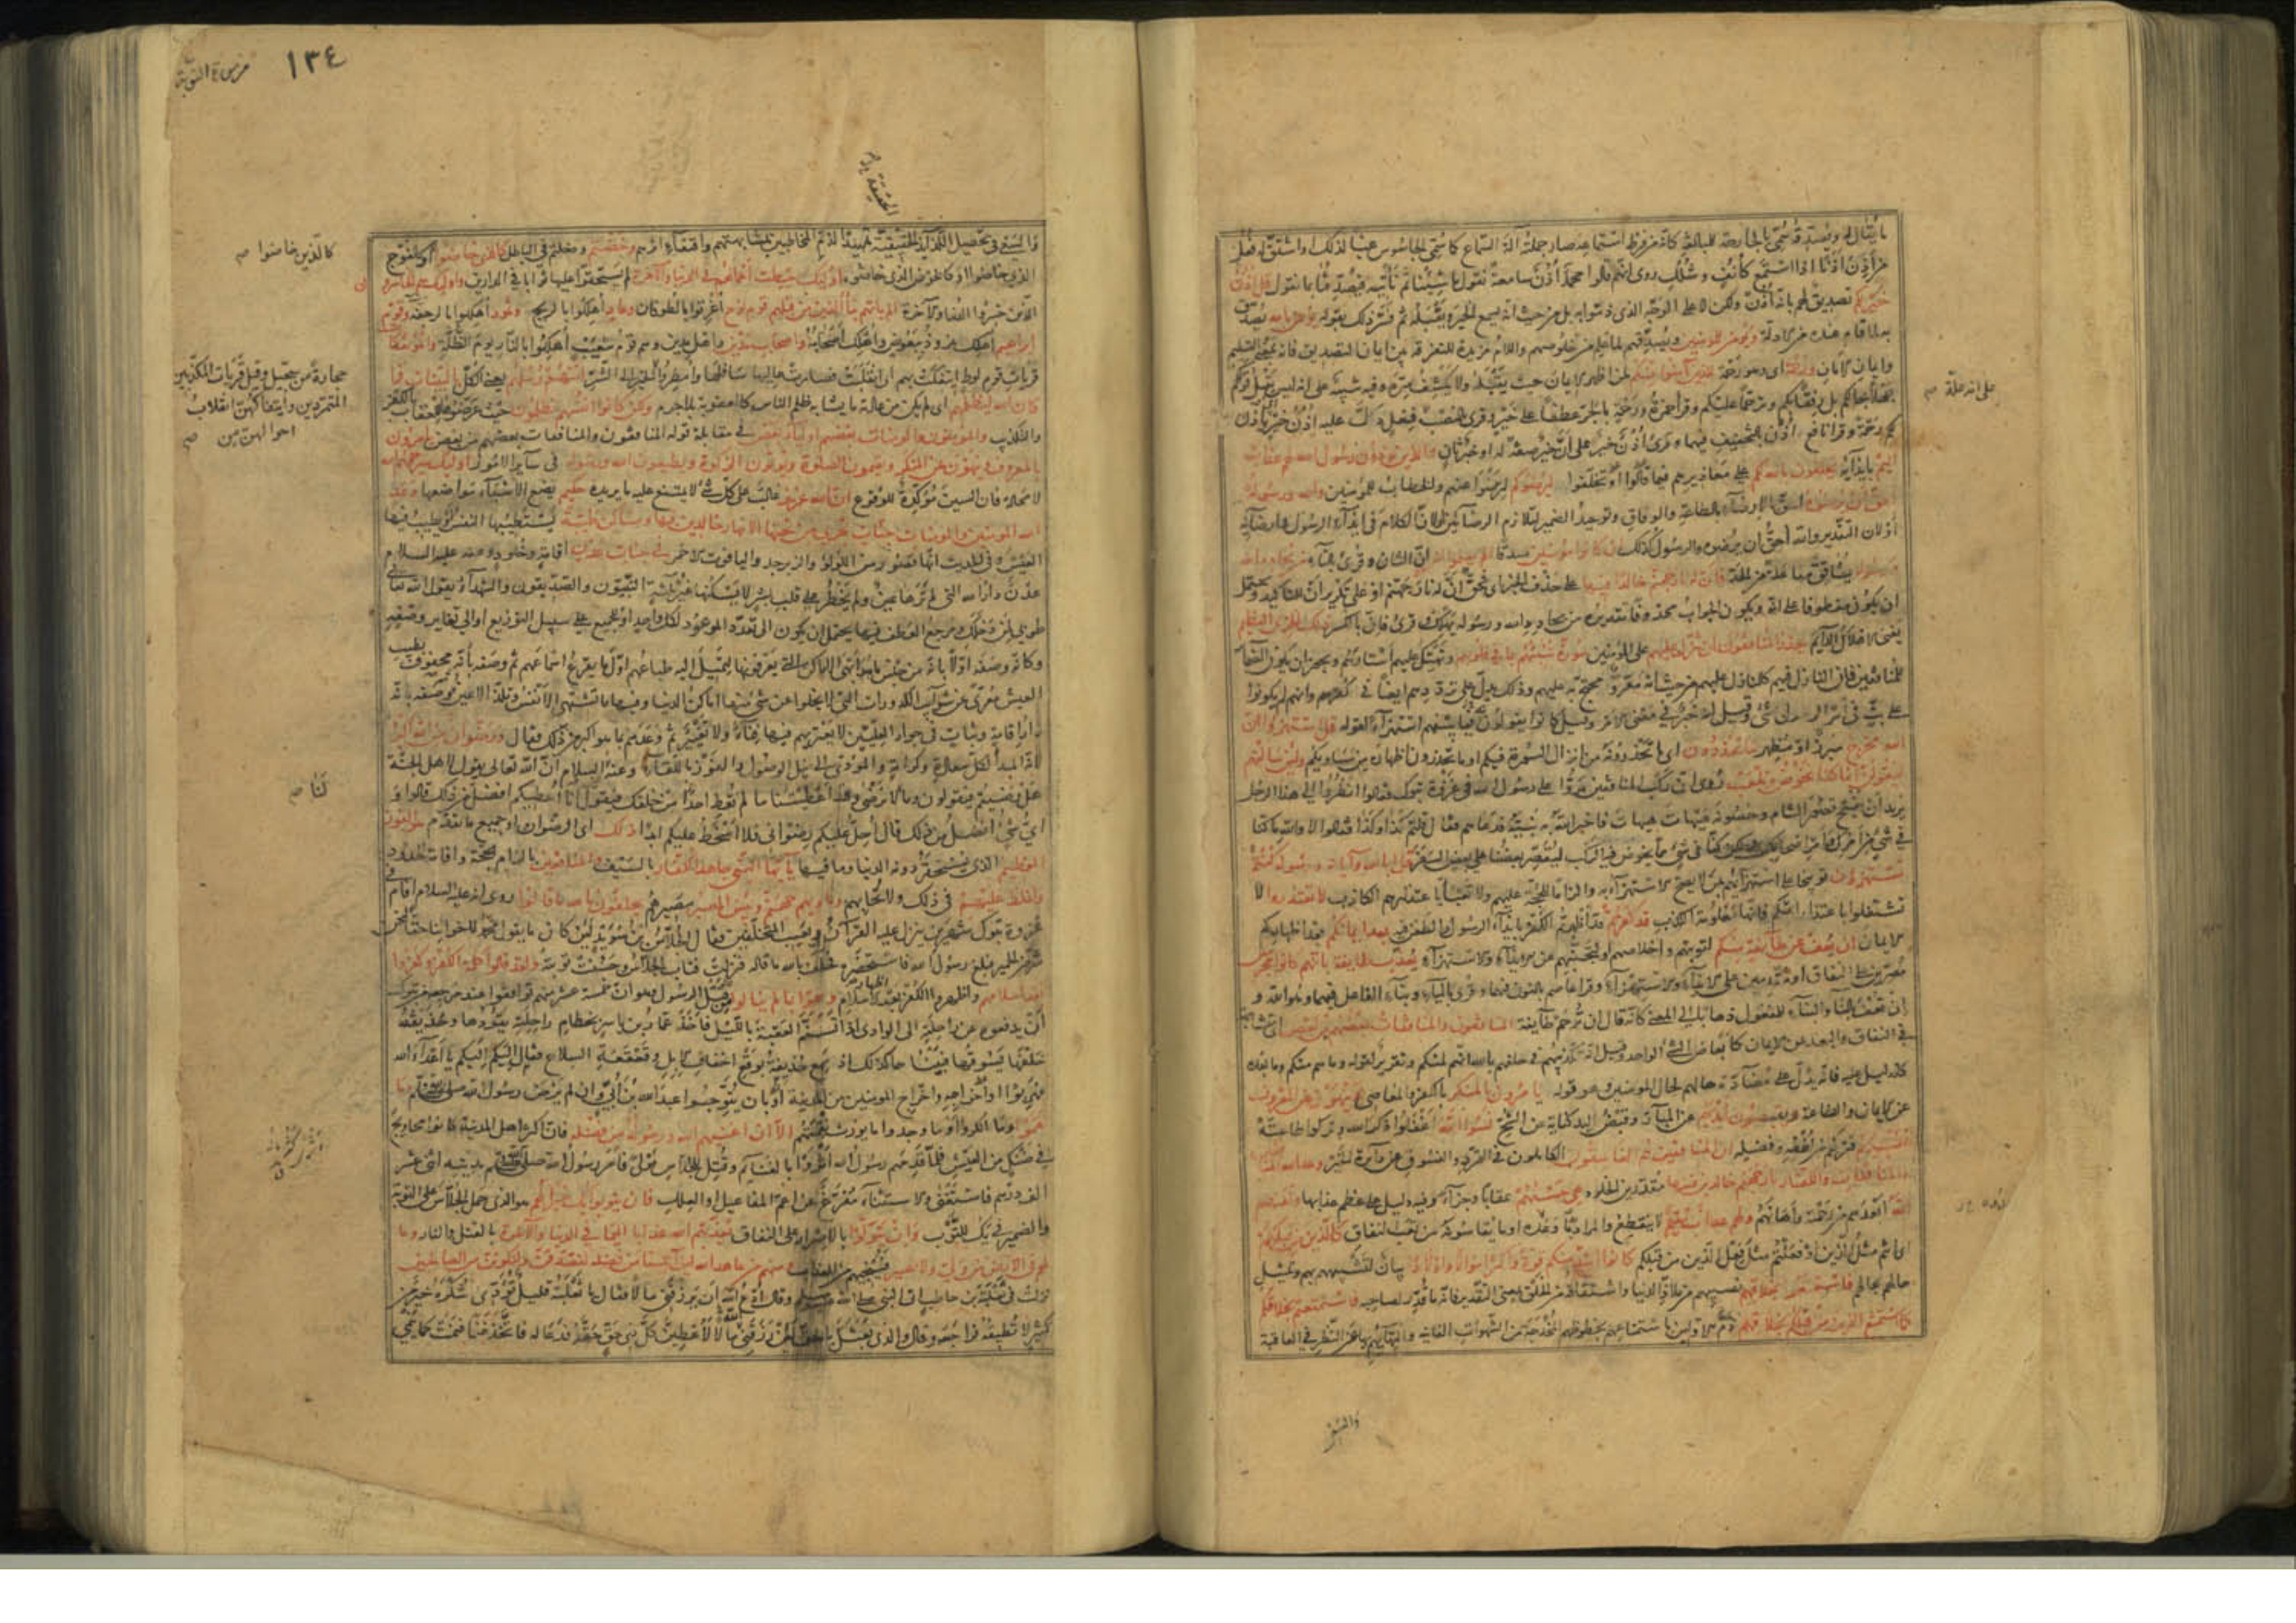 ما يقال له ويصدقه سمي بالجارحة للمبالغة كانه من فرط استماعه صار جملته آلة السماع كما سمي الجاسوس عينا لذلك او اشتق له فعل
من أذن أذنا اذا استمع كأنف وشلل روى انهم قالوا محمد أذن سامعة نقول ما شئنا ثم نأتيه فيصدقنا بما نقول قل أذن
خير لكم تصديق لهم بانه أذن ولكن لا على الوجه الذى ذموا به بل من حيث انه يسمع الخير ويقبله ثم فسر ذلك بقوله يؤمن بالله يصدق
به لما قام عنده من الادلة ويؤمن للمؤمنين ويصدقهم لما علم من خلوصهم واللام مزيدة للتفرقة بين ايمان التصديق فانه بمعنى التسليم
وايمان الامان ورحمة اى وهو رحمة للذين آمنوا منكم لمن اظهر الايمان حيث يقبله ولا يكشف سره وفيه تنبيه على انه ليس يقبل قولكم
جهلا بحالكم بل رفقا بكم وترحما عليكم وقرأ حمزة ورحمة بالجر عطفا على خير وقرئ بالنصب فعل دل عليه اذن خير يأذن
لكم رحمة وقرا نافع اذن بالتخفيف فيهما وقرئ أذن خير على ان خير صفة له او خبر ثان والذين يؤذون رسول الله لهم عذاب
اليم بايذائه يحلفون بالله لكم على معاذيرهم فيما قالوا او تخلفوا ليرضوكم لترضوا عنهم والخطاب للمؤمنين والله ورسوله
احق ان يرضوه احق بالارضاء بالطاعة والوفاق وتوحيد الضمير لتلازم الرضائين او لان الكلام فى ايذاء الرسول وارضائه
أو لان التقدير والله أحق ان يرضوه والرسول كذلك ان كانوا مؤمنين صدقا الم يعلموا انه ان الشان وقرئ بالتاء من يحادد الله
ورسوله يشاقق مفاعلة من الحد فان له نار جهنم خالدا فيها على حذف الخبر اى فحق أن له نار جهنم او على تكرير ان للتاكيد ويحتمل
ان يكون معطوفا على انه ويكون الجواب محذوفا تقديره من يحادد الله ورسوله يهلك وقرئ فان بالكسر ذلك الخزى العظيم
يعنى الاهلاك الدايم يحذر المنافقون ان تنزل عليهم على المؤمنين سورة تنبئهم بما في قلوبهم وتهتك عليهم استارهم ويجوز ان يكون الضماير
للمنافقين فان النازل فيهم كالنازل عليهم من حيث انه مقروّ ومحتج به عليهم وذلك يدل على ترددهم ايضا في كفرهم وانهم لم يكونوا
على بت في امر الرسول بشئ وقيل انه خبر في معنى الامر وقيل كانوا يقولون فيما بينهم استهزاء لقوله قل استهزؤا ان
الله مخرج مبرز او مظهر ما تحذرون اى ما تحذرونه من انزال السورة فيكم او ما تحذرون اظهاره من مساويكم ولئن سالتهم
ليقولن انما كنا نخوض ونلعب روى ان ركب المنافقين مروا على رسول الله في غزوة تبوك فقالوا انظروا الى هذا الرجل
يريد أن يفتح قصور الشام وحصونه هيهات هيهات فاخبر الله به نبيه فدعاهم فقال قلتم كذا وكذا فقالوا لا والله ما كنا
في شئ من أمرك وأمر اصحابك ولكن كنا فى شئ مما يخوض فيه الركب ليقصر بعضنا على بعض السفر قل ابالله وآياته ورسوله كنتم
تستهزؤن توبيخا على استهزائهم بمن لا يصح الاستهزاء به والزاما للحجة عليهم ولا تعبأ باعتذارهم الكاذب لا تعتذروا لا
تشتغلوا باعتذاراتكم فانها معلومة الكذب قد كفرتم قد أظهرتم الكفر بايذاء الرسول والطعن فيه بعد ايمانكم بعد اظهاركم
الايمان ان نعف عن طايفة منكم لتوبتهم واخلاصهم او لتجنبهم عن الايذاء والاستهزاء نعذب طايفة بانهم كانوا مجرمين
مصرين على النفاق او مقدمين على الايذاء والاستهزاء وقرا عاصم بالنون فيهما وقرئ بالياء وبناء الفاعل فيهما وهو الله و
ان تعف بالتاء والبناء للمفعول ذهابا الى المعنى كانه قال ان ترحم طايفة المنافقون والمنافقات بعضهم من بعض اى متشابهة
في النفاق والبعد عن الايمان كابعاض الشئ الواحد وقيل انه تكذيبهم فى حلفهم بالله انهم لمنكم وتقرير لقوله وما هم منكم وما بعده
كالدليل عليه فانه يدل على مضادة حالهم لحال المؤمنين وهو قوله يامرون بالمنكر بالكفر والمعاصى وينهون عن المعروف
عن الايمان والطاعة ويقبضون ايديهم عن المبار وقبض اليد كناية عن الشح نسوا الله أغفلوا ذكر الله وتركوا طاعته
فنسيهم فتركهم من لطفه وفضله ان المنافقين هم الفاسقون الكاملون فى التمرد والفسوق عن دآئرة الخير وعد الله المنافقين
والمنافقات والكفار نار جهنم خالدين فيها مقدرين الخلود هى حسبهم عقابا وجزاء وفيه دليل على عظم عذابها ولعنهم
الله أبعدهم من رحمته وأهانهم ولهم عذاب مقيم لا ينقطع والمراد به ما وعدوه او ما يقاسونه من تعب النفاق كالذين من قبلكم
اى انتم مثل الذين او فعلتم مثل فعل الذين من قبلكم كانوا اشد منكم قوة واكثر اموالا واولادا بيان لتشبيههم بهم وتمثيل
حالهم بحالهم فاستمتعوا بخلاقهم نصيبهم من ملاذ الدنيا واشتقاقه من الخلق بمعنى التقدير فانه ما قدر لصاحبه فاستمتعتم بخلاقكم
كما استمتع الذين من قبلكم بخلاقهم ذم الاولين باستمتاعهم بحظوظهم المخدجة من الشهوات الفانية والتهائهم بها عن النظر في العاقبة
على انه علة صح
والسعى
١٣٤
من سورة التوبة
الحقيقة
والسعي في تحصيل اللذائذ الحقيقية تمهيدا لذم المخاطبين بمشابهتهم واقتفاء اثرهم وخضتم ودخلتم في الباطل كالذى خاضوا او كالفوج
الذى خاضوا او كالخوض الذى خاضوه اولئك حبطت اعمالهم فى الدنيا والآخرة لم يستحقوا عليها ثوابا في الدارين واولئك هم الخاسرون
الذين خسروا الدنيا والآخرة الم ياتهم نبأ الذين من قبلهم قوم نوح أغرقوا بالطوفان وعاد أهلكوا بالريح وثمود أهلكوا بالرجفة وقوم
ابراهيم اهلك نمرود ببعوض واهلك أصحابه واصحاب مدين واهل مدين وهم قوم شعيب أهلكوا بالنار يوم الظلة والمؤتفكات
قريات قوم لوط ائتفكت بهم اى انقلبت فصارت عاليها سافلها وأمطروا الخير الى الشر اتتهم رسلهم يعنى الكل بالبينات فما
كان الله ليظلمهم اى لم يكن من عادته ما يشابه ظلم الناس كالعقوبة بلا جرم ولكن كانوا انفسهم يظلمون حيث عرضوها للعقاب بالكفر
والتكذيب والمؤمنون والمؤمنات بعضهم اولياء بعض في مقابلة قوله المنافقون والمنافقات بعضهم من بعض يامرون
بالمعروف وينهون عن المنكر ويقيمون الصلوة ويؤتون الزكوة ويطيعون الله ورسوله فى ساير الامور اولئك سيرحمهم الله
لا محالة فان السين مؤكدة للوقوع ان الله عزيز غالب على كل شئ لا يمتنع عليه ما يريده حكيم يضع الاشياء مواضعها وعد
الله المؤمنين والمؤمنات جنات تجرى من تحتها الانهار خالدين فيها ومساكن طيبة يستطيبها النفس او يطيب فيها
العيش وفى الحديث انها قصور من اللؤلؤ والزبرجد والياقوت الاحمر في جنات عدن اقامة وخلود وعنه عليه السلام
عدن دار الله التى لم ترها عين ولم يخطر على قلب بشر لا يسكنها غير ثلثة النبيون والصديقون والشهدآء يقول الله تعالى
طوبى لمن دخلك ومرجع العطف فيها يحتمل ان يكون الى تعدد الموعود لكل واحد او للجميع على سبيل التوزيع او الى تغاير وصفه
وكانه وصفه اولا بانه من جنس ما هو ابهى الاماكن التي يعرفونها لتميل اليه طباعهم اول ما يقرع اسماعهم ثم وصفه بأنه محفوف بطيب
العيش معرى عن شوائب الكدورات التى لا تخلوا عن شئ منها اماكن الدنيا وفيها ما تشتهى الانفس وتلذ الاعين ثم وصفه بانه
دار اقامة وثبات فى جوار العليين لا يعتريهم فيها فناء ولا تغير ثم وعدهم بما هو اكبر من ذلك فقال ورضوان من الله اكبر
لانه المبدأ لكل سعادة وكرامة والمؤدى الى نيل الوصول والفوز باللقاء وعنه عليه السلام ان الله تعالى يقول لاهل الجنة
هل رضيتم فيقولون وما لنا لا نرضى وقد اعطيتنا ما لم تعط احدا من خلقك فيقول انا أعطيكم افضل من ذلك قالوا و
اى شئ افضل من ذلك قال أحل عليكم رضوانى فلا اسخط عليكم ابدا ذلك اى الرضوان او جميع ما تقدم هو الفوز
العظيم الذى يستحقر دونه الدنيا وما فيها يا ايها النبى جاهد الكفار بالسيف والمنافقين بالزام الحجة واقامة الحدود
واغلظ عليهم فى ذلك ولا تحابهم وماويهم جهنم وبئس المصير مصيرهم يحلفون بالله ما قالوا روى انه عليه السلام اقام فى
غزوة تبوك شهرين ينزل عليه القرآن ويعيب المتخلفين فقال الجلاس بن سويد لئن كان ما يقول محمد لاخواننا حقا لنحن
شر من الحمير فبلغ رسول الله فاستحضره فحلف بالله ما قاله فنزلت فتاب الجلاس وحسنت توبته ولقد قالوا كلمة الكفر وكفروا
بعد اسلامهم واظهروا الكفر بعد اظهار الاسلام وهموا بما لم ينالوا من قتل الرسول وهو ان خمسة عشر منهم توافقوا عند مرجعه من تبوك
أن يدفعوه عن راحلته الى الوادى اذا تسنم العقبة بالليل فأخذ عمار بن ياسر بخطام راحلته يقودها وحذيفة
خلفها يسوقها فبينما هما كذلك اذ سمع حذيفة بوقع اخفاف الابل وقعقعة السلاح فقال اليكم اليكم يا أعداء الله
فهربوا او اخراجه واخراج المؤمنين من المدينة او بان يتوجوا عبد الله بن أبي وان لم يرض رسول الله صلى الله عليه وسلم وما
نقموا وما انكروا او ما وجدوا ما يورث نقمتهم الا ان اغنيهم الله ورسوله من فضله فان اكثر اهل المدينة كانوا محاويج
في ضنك من العيش فلما قدمهم رسول الله اثروا بالغنائم وقتل للجلاس مولى فأمر رسول الله صلى الله عليه وسلم بديته اثنى عشر
الف درهم فاستغنى والاستثناء مفرغ من اعم المفاعيل او العلل فان يتوبوا يك خيرا لهم هو الذى حمل الجلاس على التوبة
والضمير فى يك للتوب وان يتولوا بالاصرار على النفاق يعذبهم الله عذابا اليما في الدنيا والآخرة بالقتل والنار وما
لهم فى الارض من ولى ولا نصير فينجيهم من العذاب ومنهم من عاهد الله لئن آتينا من فضله لنصدقن ولنكونن من الصالحين
نزلت فى ثعلبة بن حاطب اتى النبى صلى الله عليه وسلم وقال ادع الله ان يرزقنى مالا فقال يا ثعلبة قليل تؤدى شكره خير من
كثير لا تطيقه فراجعه وقال والذى بعثك بالحق لئن رزقنى الله مالا لأعطين كل ذى حق حقه فدعا له فاتخذ غنما فنمت كما ينمى
كالذين خاضوا صح
حجارة من سجيل وقيل قريات المكذبين
المتمردين وايتفاكهن انقلاب
احوالهن من صح
لنا صح